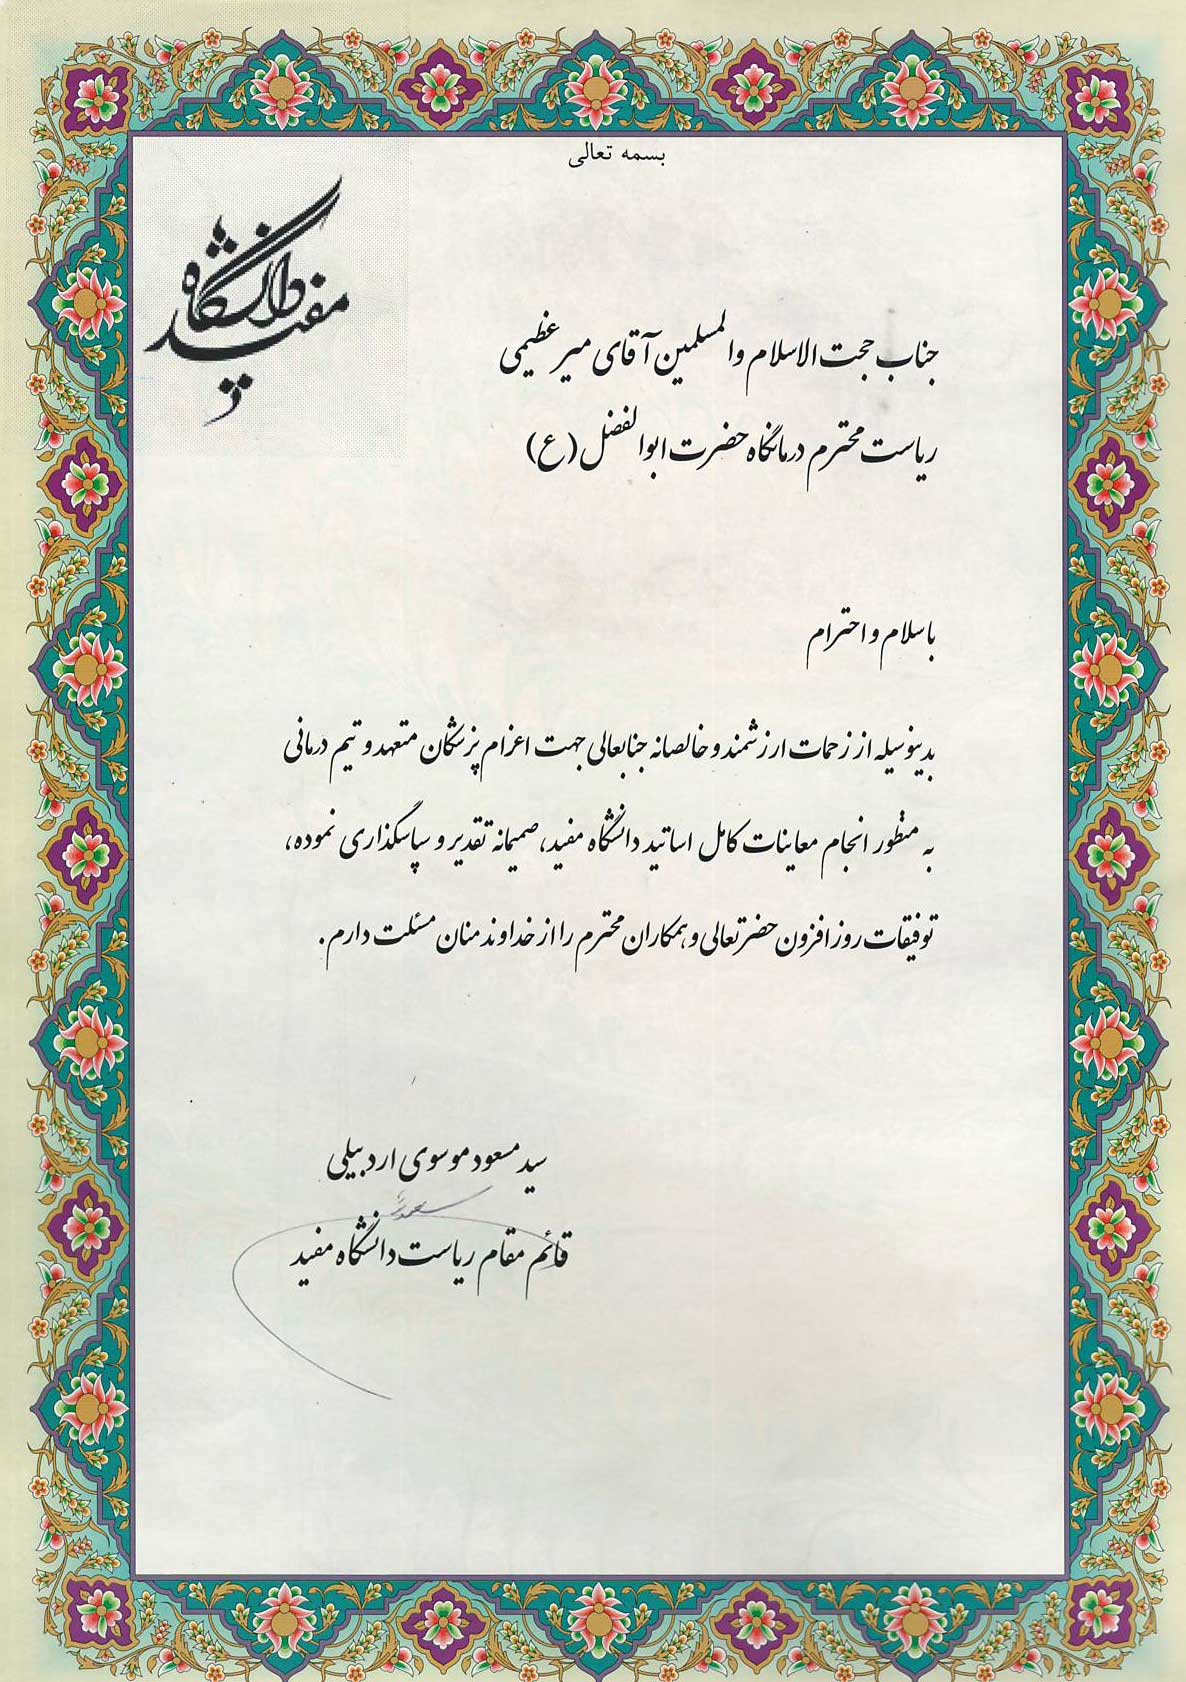 بسمه تعالی
دانشگاه مفید
جناب حجت الاسلام والمسلمین آقای میر عظیمی
ریاست محترم درمانگاه حضرت ابوالفضل (ع)
با سلام و احترام
بدینوسیله از زحمات ارزشمند و خالصانه جنابعالی جهت اعزام پزشکان متعهد و تیم درمانی
به منظور انجام معاینات کامل اساتید دانشگاه مفید، صمیمانه تقدیر و سپاسگذاری نموده،
توفیقات روزافزون حضرتعالی و همکاران محترم را از خداوند منان مسئلت دارم.
سید مسعود موسوی اردبیلی
قائم مقام ریاست دانشگاه مفید